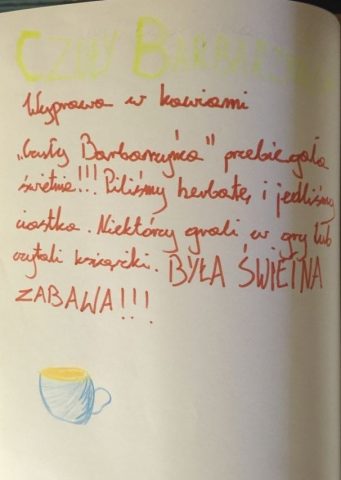 CZUŁY BARBARZYŃCA
Wyprawa w kawiarni
„Czuły Barbarzyńca" przebiegała
świetnie!!! Piliśmy herbatę, i jedliśmy
ciastka. Niektórzy grali w gry lub
czytali książki. BYŁA ŚWIETNA
ZABAWA!!!